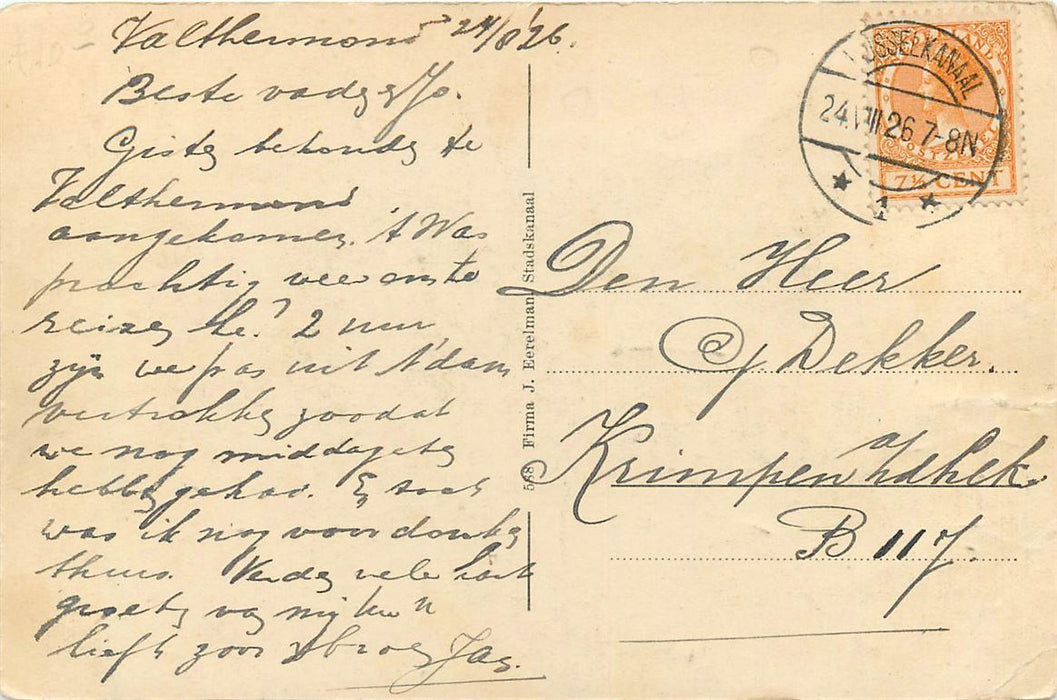 Valthermond 24/8 '26.
Beste vader & Jo.
Gister behouden te
Valthermond
aangekomen. 't Was
prachtig weer om te
reizen he? 2 uur
zijn we pas uit A'dam
vertrokken zoodat
we nog middageten
hebben gehad. En toch
was ik nog voor donker
thuis. Verder vele hart
groeten van mij
liefh zoon & broer Jac.
588 Firma J. Eerelman Stadskanaal
NEDERLAND
POSTZEGEL
7½ CENT
IJSSELKANAAL
24.VIII.26 7-8N
1
Den Heer
C Dekker.
Krimpen a/
B 117.